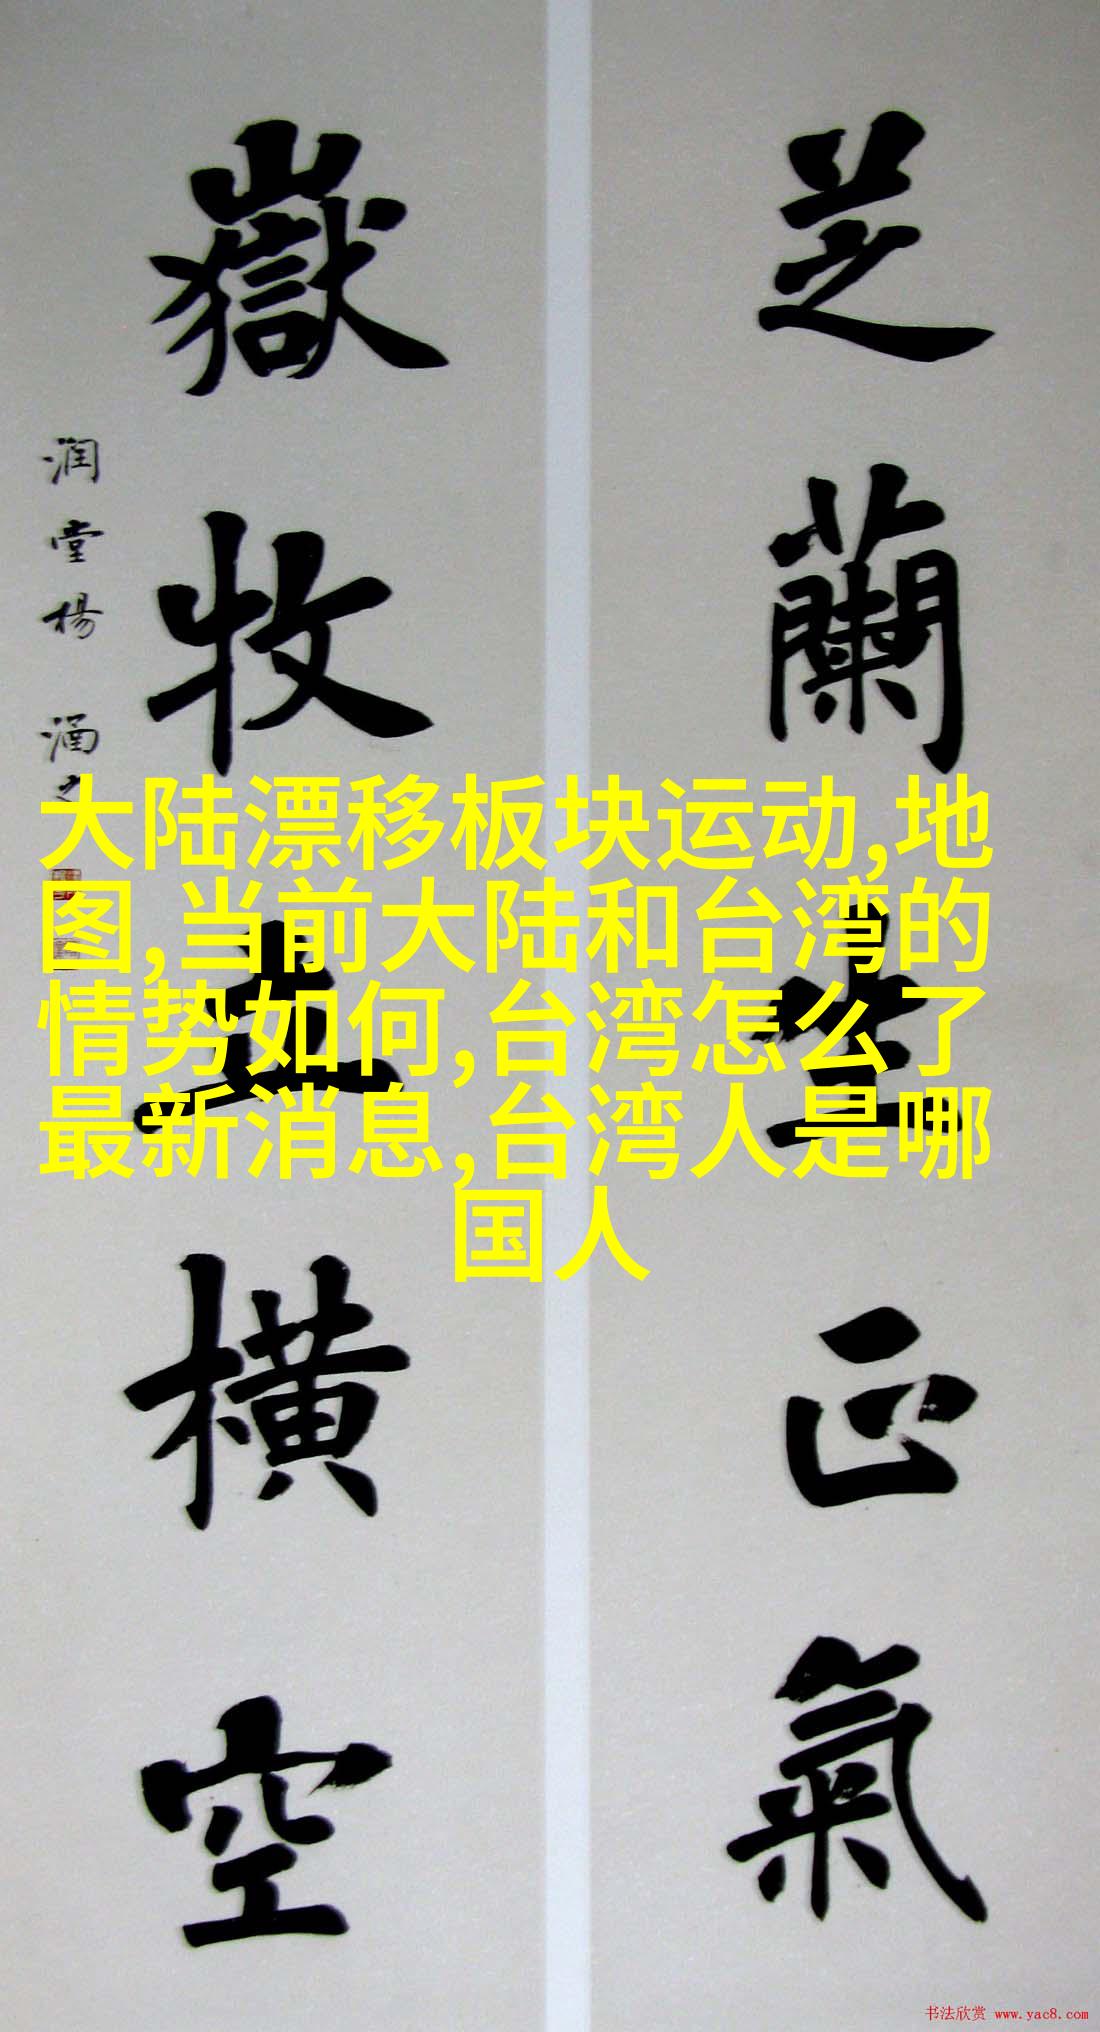 芝蘭生正氣
嶽牧立橫空
润堂楊涵之
大陆漂移板块运动,地
图,当前大陆和台湾的
情势如何,台湾怎么了
最新消息,台湾人是哪
国人
书法欣赏 www.yac8.com